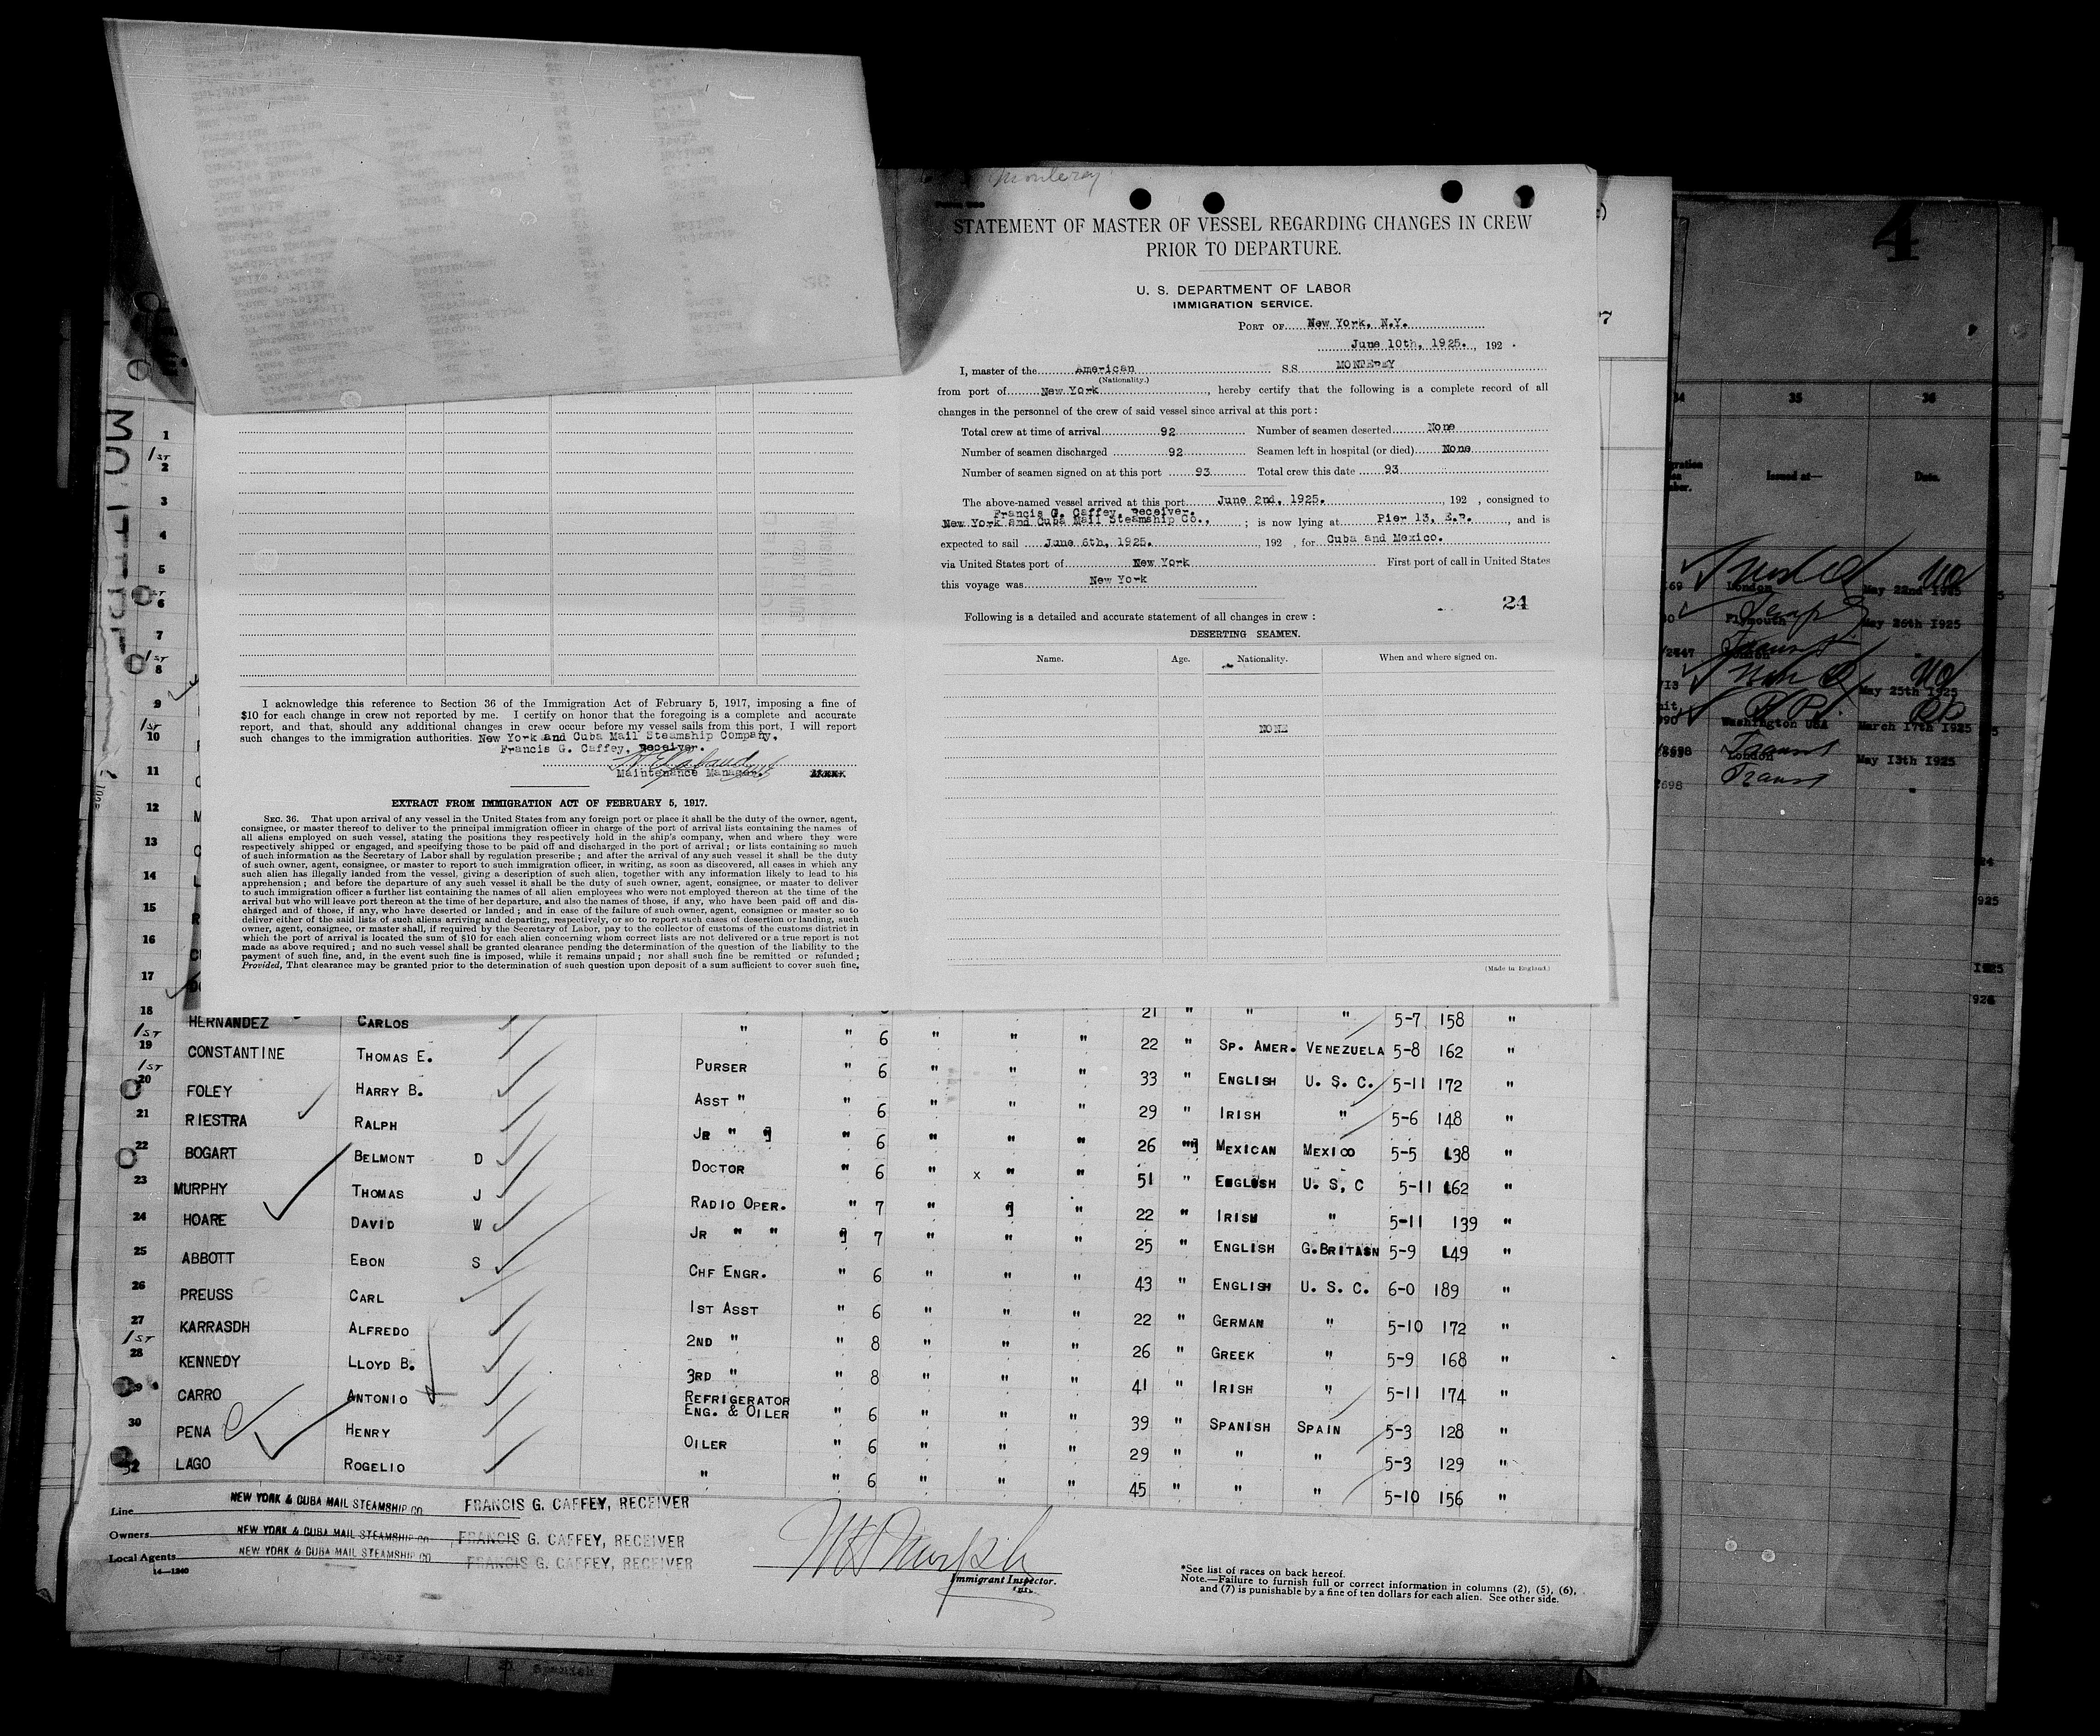 Monterey
STATEMENT OF MASTER OF VESSEL REGARDING CHANGES IN CREW
PRIOR TO DEPARTURE.
U. S. DEPARTMENT OF LABOR
IMMIGRATION SERVICE.
PORT OF New York, N.Y.
June 10th, 1925. , 192 .
I, master of the American SS. MONTEREY
(Nationality.)
from port of New York , hereby certify that the following is a complete record of all
changes in the personnel of the crew of said vessel since arrival at this port:
Total crew at time of arrival 92 Number of seamen deserted None
Number of seamen discharged 92 Seamen left in hospital (or died) None
Number of seamen signed on at this port 93 Total crew this date 93
The above-named vessel arrived at this port June 2nd, 1925. , 192 , consigned to
Francis G. Caffey, Receiver.
New York and Cuba Mail Steamship Co., ; is now lying at Pier 13, E.R. , and is
expected to sail June 6th, 1925. , 192 , for Cuba and Mexico.
via United States port of New York First port of call in United States
this voyage was New York
24
Following is a detailed and accurate statement of all changes in crew :
DESERTING SEAMEN.
Name. Age. Nationality. When and where signed on.
NONE
(Made in England.)
I acknowledge this reference to Section 36 of the Immigration Act of February 5, 1917, imposing a fine of
$10 for each change in crew not reported by me. I certify on honor that the foregoing is a complete and accurate
report, and that, should any additional changes in crew occur before my vessel sails from this port, I will report
such changes to the immigration authorities. New York and Cuba Mail Steamship Company,
Francis G. Caffey, Receiver.
Maintenance Manager.
EXTRACT FROM IMMIGRATION ACT OF FEBRUARY 5, 1917.
SEC. 36. That upon arrival of any vessel in the United States from any foreign port or place it shall be the duty of the owner, agent,
consignee, or master thereof to deliver to the principal immigration officer in charge of the port of arrival lists containing the names of
all aliens employed on such vessel, stating the positions they respectively hold in the ship's company, when and where they were
respectively shipped or engaged, and specifying those to be paid off and discharged in the port of arrival; or lists containing so much
of such information as the Secretary of Labor shall by regulation prescribe; and after the arrival of any such vessel it shall be the duty
of such owner, agent, consignee, or master to report to such immigration officer, in writing, as soon as discovered, all cases in which any
such alien has illegally landed from the vessel, giving a description of such alien, together with any information likely to lead to his
apprehension; and before the departure of any such vessel it shall be the duty of such owner, agent, consignee, or master to deliver
to such immigration officer a further list containing the names of all alien employees who were not employed thereon at the time of the
arrival but who will leave port thereon at the time of her departure, and also the names of those, if any, who have been paid off and dis-
charged and of those, if any, who have deserted or landed; and in case of the failure of such owner, agent, consignee or master so to
deliver either of the said lists of such aliens arriving and departing, respectively, or so to report such cases of desertion or landing, such
owner, agent, consignee, or master shall, if required by the Secretary of Labor, pay to the collector of customs of the customs district in
which the port of arrival is located the sum of $10 for each alien concerning whom correct lists are not delivered or a true report is not
made as above required; and no such vessel shall be granted clearance pending the determination of the question of the liability to the
payment of such fine, and, in the event such fine is imposed, while it remains unpaid; nor shall such fine be remitted or refunded;
Provided, That clearance may be granted prior to the determination of such question upon deposit of a sum sufficient to cover such fine,
1
1st 2
3
4
5
1st 6
7
1st 8
9
1st 10
11
12
13
14
15
16
17
18 HERNANDEZ CARLOS 21 " " " 5-7 158 "
1st 19 CONSTANTINE THOMAS E. " " 6 " " " 22 " SP. AMER. VENEZUELA 5-8 162 "
1st 20 FOLEY HARRY B. PURSER " 6 " " " 33 " ENGLISH U. S. C. 5-11 172 "
21 RIESTRA RALPH ASST " " 6 " " " 29 " IRISH " 5-6 148 "
22 BOGART BELMONT D JR " " " 6 " " " 26 " MEXICAN MEXICO 5-5 138 "
23 MURPHY THOMAS J DOCTOR " 6 " x " " 51 " ENGLISH U. S, C 5-11 162 "
24 HOARE DAVID W RADIO OPER. " 7 " " 22 " IRISH " 5-11 139 "
25 ABBOTT EBON S JR " " 7 " " " 25 " ENGLISH G.BRITASN 5-9 149 "
26 PREUSS CARL CHF ENGR. " 6 " " " 43 " ENGLISH U. S. C. 6-0 189 "
27 KARRASDH ALFREDO 1ST ASST " 6 " " " 22 " GERMAN " 5-10 172 "
1st 28 KENNEDY LLOYD B. 2ND " " 8 " " " 26 " GREEK " 5-9 168 "
29 CARRO ANTONIO 3RD " " 8 " " " 41 " IRISH " 5-11 174 "
30 PENA HENRY REFRIGERATOR
ENG. & OILER " 6 " " " 39 " SPANISH SPAIN 5-3 128 "
LAGO ROGELIO OILER " 6 " " " 29 " " " 5-3 129 "
" " 6 " " " 45 " " " 5-10 156 "
Line NEW YORK & CUBA MAIL STEAMSHIP CO FRANCIS G. CAFFEY, RECEIVER
Owners NEW YORK & CUBA MAIL STEAMSHIP CO. FRANCIS G. CAFFEY, RECEIVER
Local Agents NEW YORK & CUBA MAIL STEAMSHIP CO FRANCIS G. CAFFEY, RECEIVER
14—1240
Immigrant Inspector.
*See list of races on back hereof.
Note.—Failure to furnish full or correct information in columns (2), (5), (6),
and (7) is punishable by a fine of ten dollars for each alien. See other side.
4
34 35 36
Issued at— Date.
London May 22nd 1925
Plymouth May 26th 1925
London
May 25th 1925
Washington USA March 17th 1925
London May 13th 1925
Transt